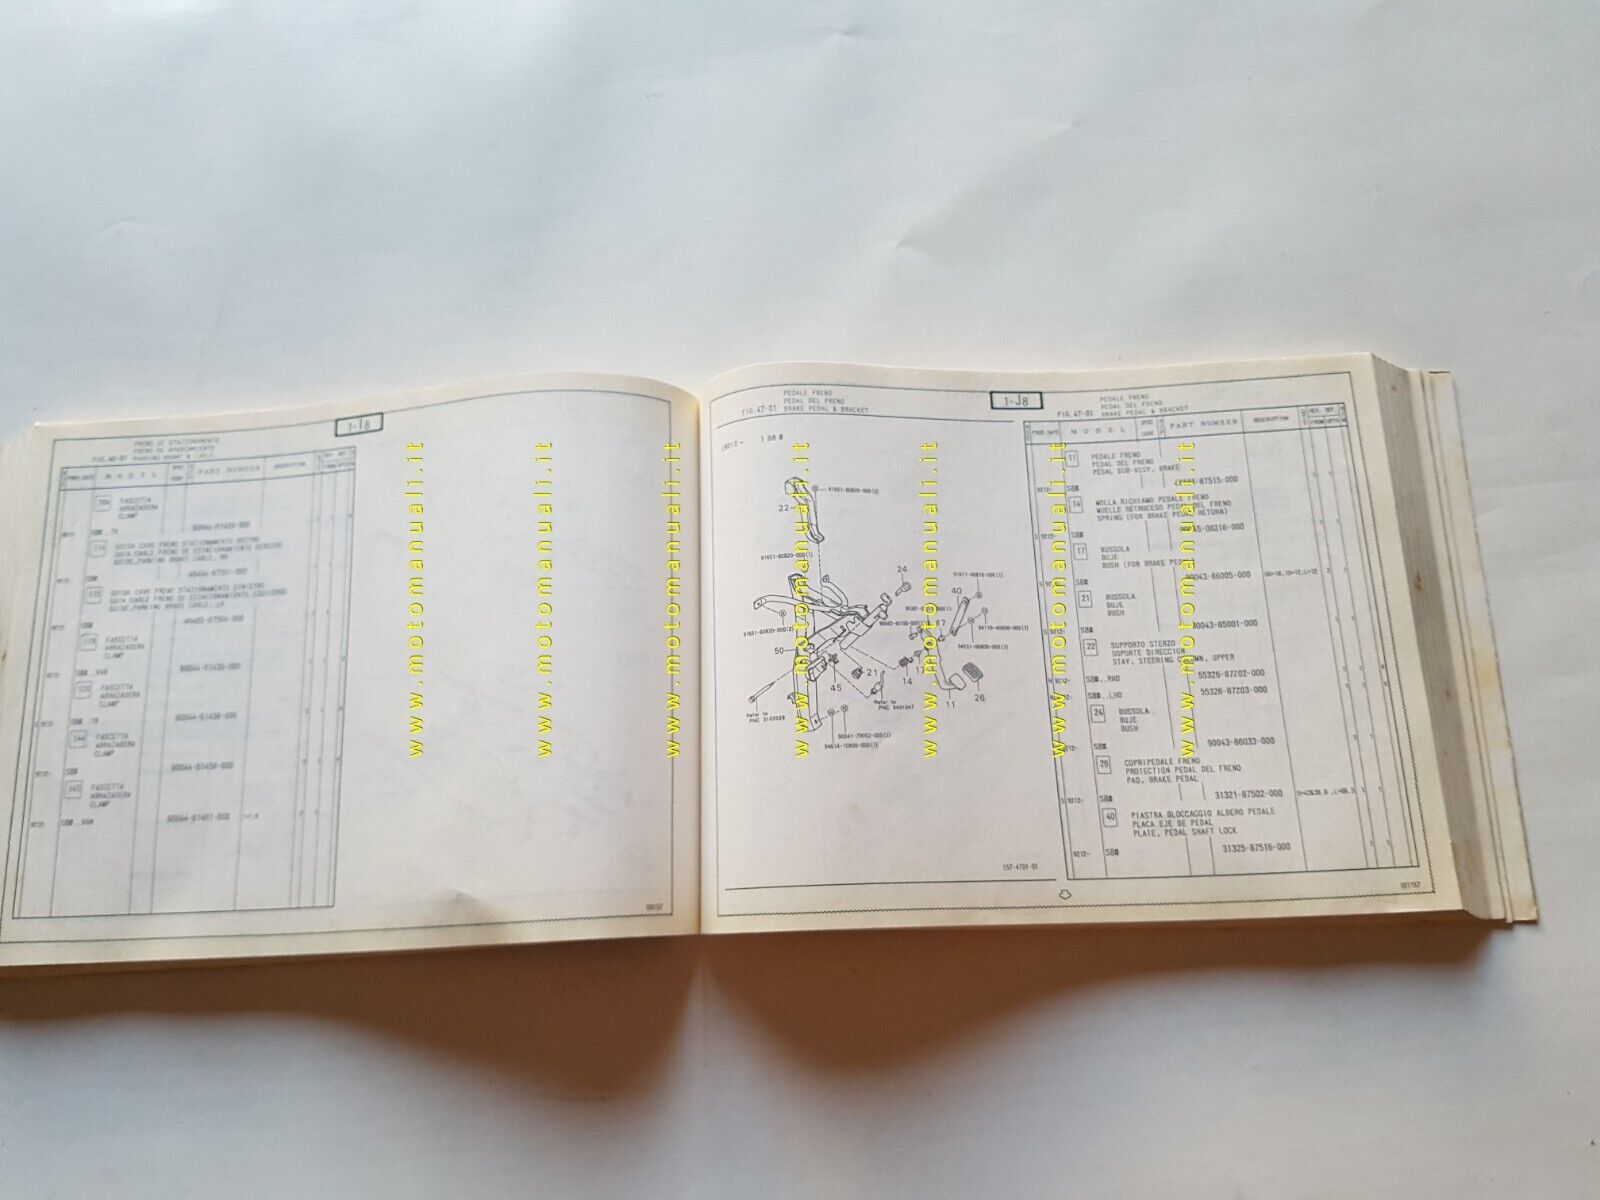 1-I8
FRENO DI STAZIONAMENTO
FIG.46-01 PARKING BRAKE & CABLE
PROD.DATE M O D E L SPEC CODE PART NUMBER DESCRIPTION
104 FASCETTA
ABRAZADERA
CLAMP
9212- S8#..TR 90044-61439-000
114 GUIDA CAVO FRENO STAZIONAMENTO DESTRO
GUIA CABLE FRENO DE ESTACIONAMIENTO DERECHO
GUIDE,PARKING BRAKE CABLE, RH
S8#
115 GUIDA CAVO FRENO STAZIONAMENTO SINISTRO
GUIA CABLE FRENO DE ESTACIONAMIENTO IZQUIERDO
GUIDE,PARKING BRAKE CABLE, LH
S8#
FASCETTA
ABRAZADERA
CLAMP
S8#..VAN 90044-61439-000
120 FASCETTA
ABRAZADERA
CLAMP
S 9212- S8#..TR 90044-61458-000
144 FASCETTA
ABRAZADERA
CLAMP
9212- S8# 90044-61458-000
145 FASCETTA
ABRAZADERA
CLAMP
9212- S8#..VAN 90044-61461-000
100157
PEDALE FRENO
PEDAL DEL FRENO
FIG.47-01 BRAKE PEDAL & BRACKET
1-J8
(9212- ) S8#
91651-60820-000(2)
22
91651-60820-000(1)
24
91611-40816-000(1)
40
90042-40109-000(1)
17
94110-40800-000(1)
94531-00800-000(1)
91651-60820-000(2)
50
45
21
14
17
11
26
Refer to
PNC 3102029
Refer to
PNC 8401047
90041-79052-000(1)
94614-10800-000(1)
157-4701-01
PEDALE FRENO
PEDAL DEL FRENO
FIG.47-01 BRAKE PEDAL & BRACKET
PROD.DATE M O D E L SPEC CODE PART NUMBER DESCRIPTION
11 PEDALE FRENO
PEDAL DEL FRENO
PEDAL SUB-ASSY, BRAKE
9212- S8# 87515-000
14 MOLLA RICHIAMO PEDALE FRENO
MUELLE RETROCESO PEDAL DEL FRENO
SPRING (FOR BRAKE PEDAL RETURN)
S 9212- S8# 08216-000
17 BUSSOLA
BUJE
BUSH (FOR BRAKE PEDAL
S 9212- S8# 90043-86005-000
21 BUSSOLA
BUJE
BUSH
9212- S8# 90043-85001-000
22 SUPPORTO STERZO
SOPORTE DIRECCION
STAY, STEERING COLUMN, UPPER
S 9212- S8#..RHD 55326-87202-000
9212- S8#..LHD 55326-87203-000
24 BUSSOLA
BUJE
BUSH
9212- S8# 90043-86033-000
26 COPRIPEDALE FRENO
PROTECTION PEDAL DEL FRENO
PAD, BRAKE PEDAL
S 9212- S8# 31321-87502-000
40 PIASTRA BLOCCAGGIO ALBERO PEDALE
PLACA EJE DE PEDAL
PLATE, PEDAL SHAFT LOCK
9212- S8# 31325-87516-000
101157
www.motomanuali.it
www.motomanuali.it
www.motomanuali.it
www.motomanuali.it
www.motomanuali.it
www.motomanuali.it
www.motomanuali.it